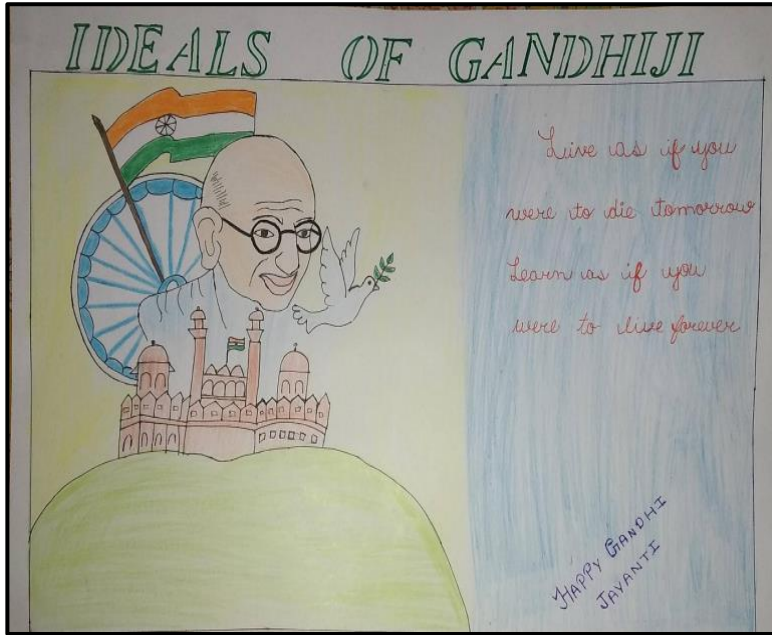 IDEALS OF GANDHIJI
Live as if you
were to die tomorrow
Learn as if you
were to live forever
HAPPY GANDHI
JAYANTI